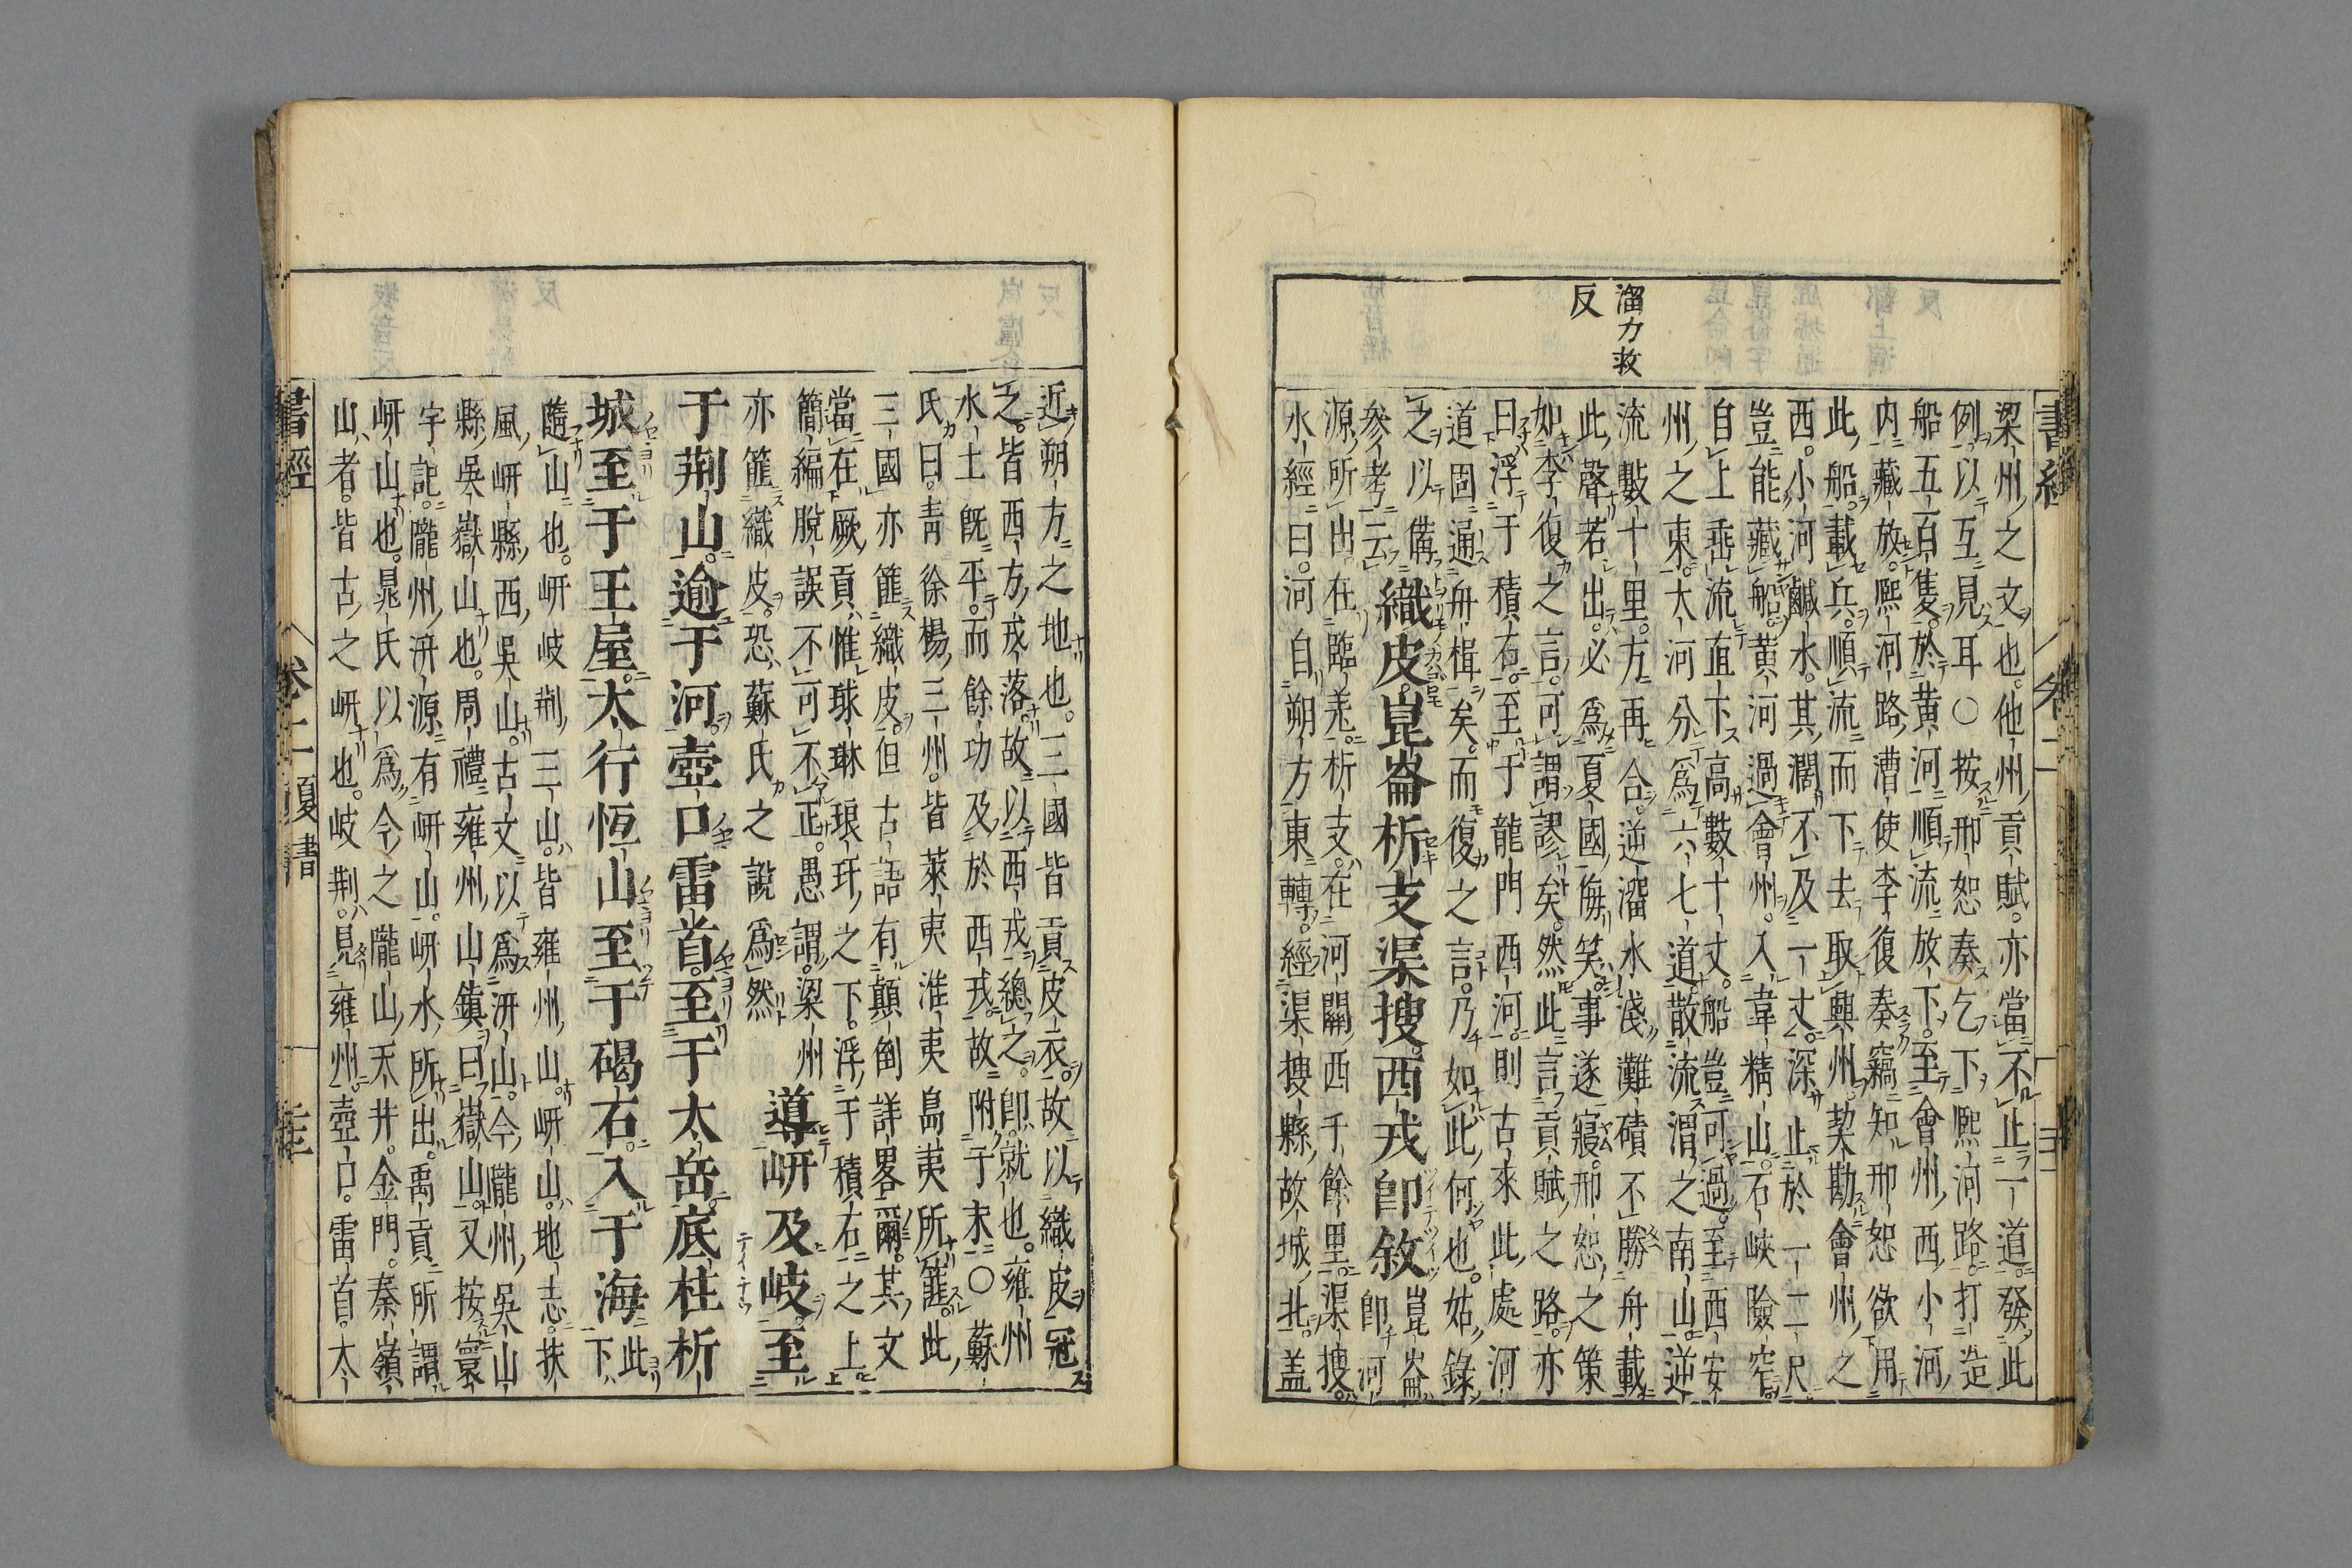 溜力救
反
梁州之文也。他州貢賦。亦當不止一道。發此
例。以互見耳〇按邢恕奏乞下熙河路。打造
船五百隻。於黄河順流放下。至會州西小河
内藏放。熙河路漕使李復奏竊知邢恕欲用
此船。載兵。順流而下去取興州。契勘會州之
西。小河鹹水。其濶不及一丈。深止於一二尺
豈能藏船。黄河過會州。入韋精山。石峽險窄。
自上垂流直下。高數十丈。船豈可過。至西安
州之東。大河分爲六七道散流。渭之南山。逆
流數十里。方再合。逆溜水淺灘磧不勝舟載
此聲若出。必爲夏國侮笑。事遂寢。邢恕之策
如李復之言。可謂謬矣。然此言貢賦之路。亦
曰浮于積石。至于龍門西河。則古來此處河
道固通舟楫矣。而復之言。乃如此何也。姑錄
之以備
參考云
織皮。崑崙析支渠搜。西戎卽敘
崑崙
卽河
源所出在臨羌。析支。在河關西千餘里。渠搜。
水經曰。河自朔方東轉。經渠搜縣故城北。盖
近朔方之地也。三國皆貢皮衣。故以織皮冠
之。皆西方戎落。故以西戎總之。卽就也。雍州
水土既平。而餘功及於西戎。故附于末〇蘇
氏曰。青徐楊三州。皆萊夷淮夷島夷所篚。此
三國亦篚織皮。但古語有顛倒詳畧爾。其文
當在厥貢惟球琳琅玕之下。浮于積石之上
簡編脫誤不可不正。愚謂。梁州
亦篚織皮。恐蘇氏之說爲然
導岍及岐。至
于荆山。逾于河。壺口雷首。至于太岳。底柱析
城至于王屋。太行恆山至于碣石。入于海
此下
隨山也。岍岐荆三山。皆雍州山。岍山。地志。扶
風岍縣西吳山。古文以爲汧山。今隴州吳山
縣吳嶽山也。周禮雍州山鎮曰嶽山。又按寰
宇記。隴州汧源有岍山。岍水所出。禹貢所謂
岍山也。晁氏以爲今之隴山天井。金門。秦嶺
山者。皆古之岍也。岐荆。見雍州。壺口。雷首。太